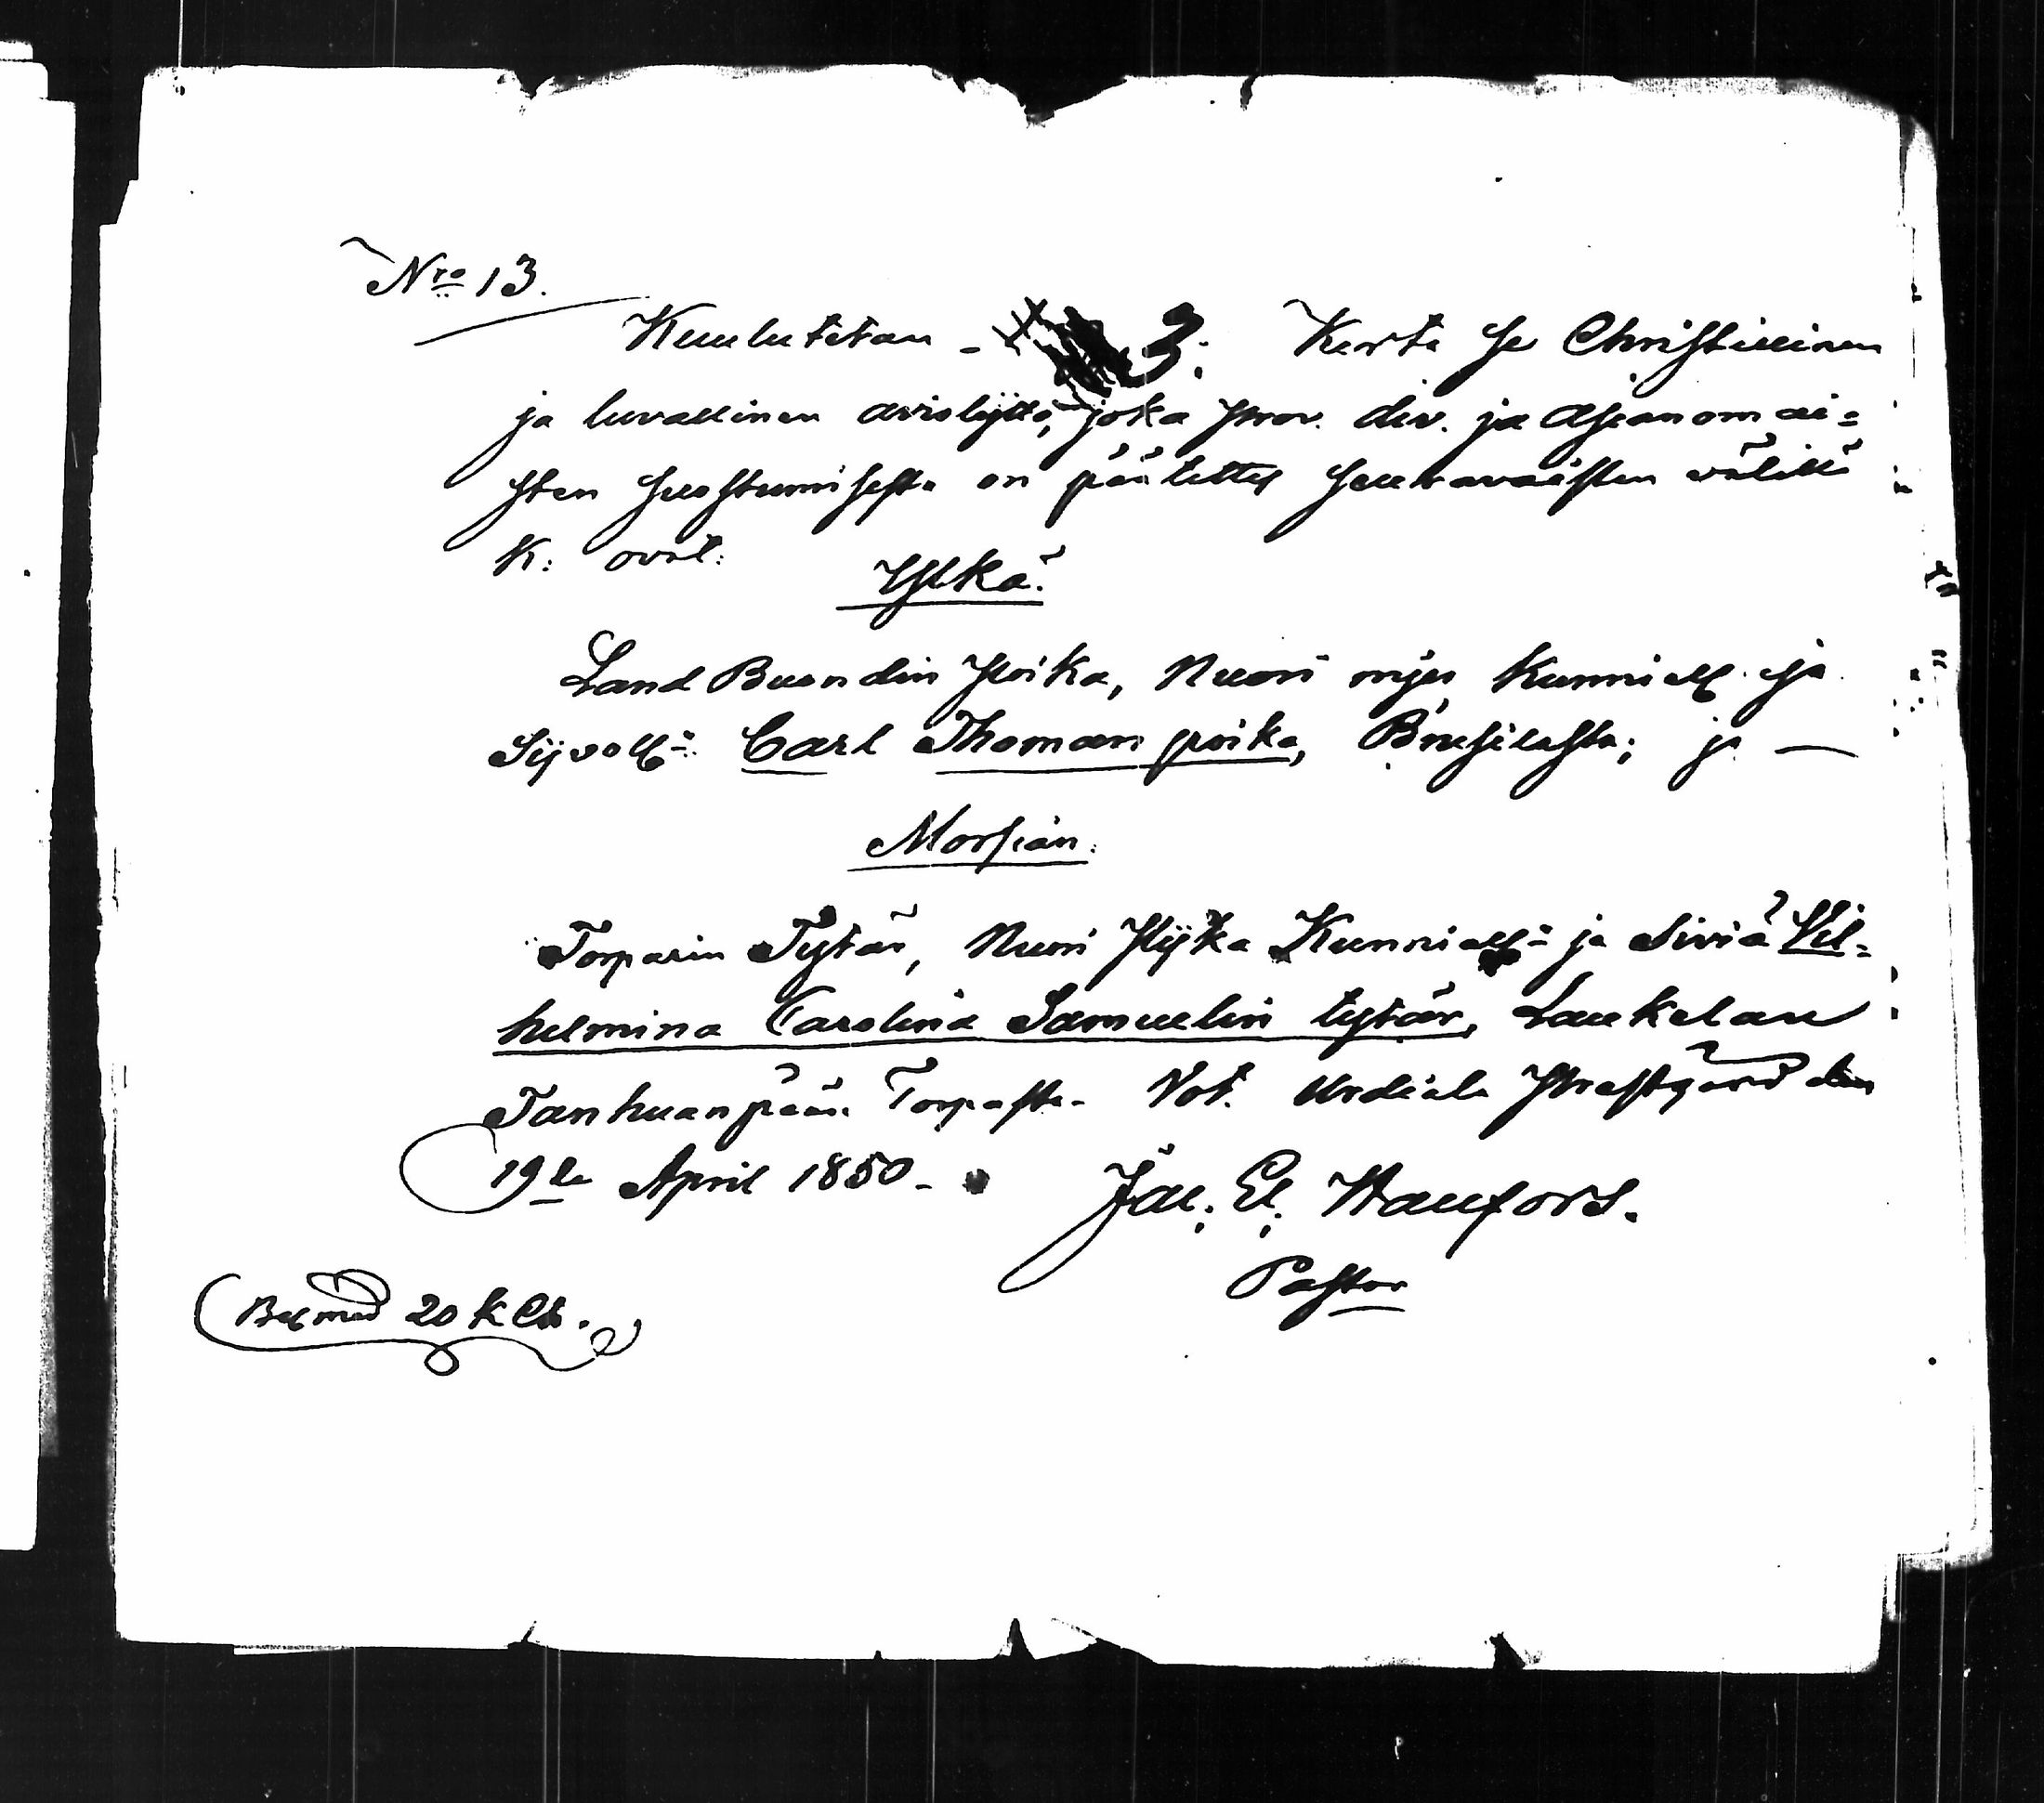 Nro 13.
Kuulutetan - 3: Kerta se Christillinen
ja luvallinen avioliitto, joka prov. div. ja asianomai=
sten suostumisesta on päätetty seuravaisten välillä
K: ovat:
Ylkä:
Land Buendin Poika, Nuori mies kunniall. ja
Siivoll: Carl Thomanpoika, Brusilasta; ja —
Morsian:
Torparin Tytär, Nuori Pijka Kunniall: ja Siviä Vil=
helmina Carolina Samuelin tytär, Laukelan
Tanhuanpään Torpasta. Not. Urdiala Prestgård den
19de April 1850.
Jac. El. Waufors.
Pastor
Bet med 20 k